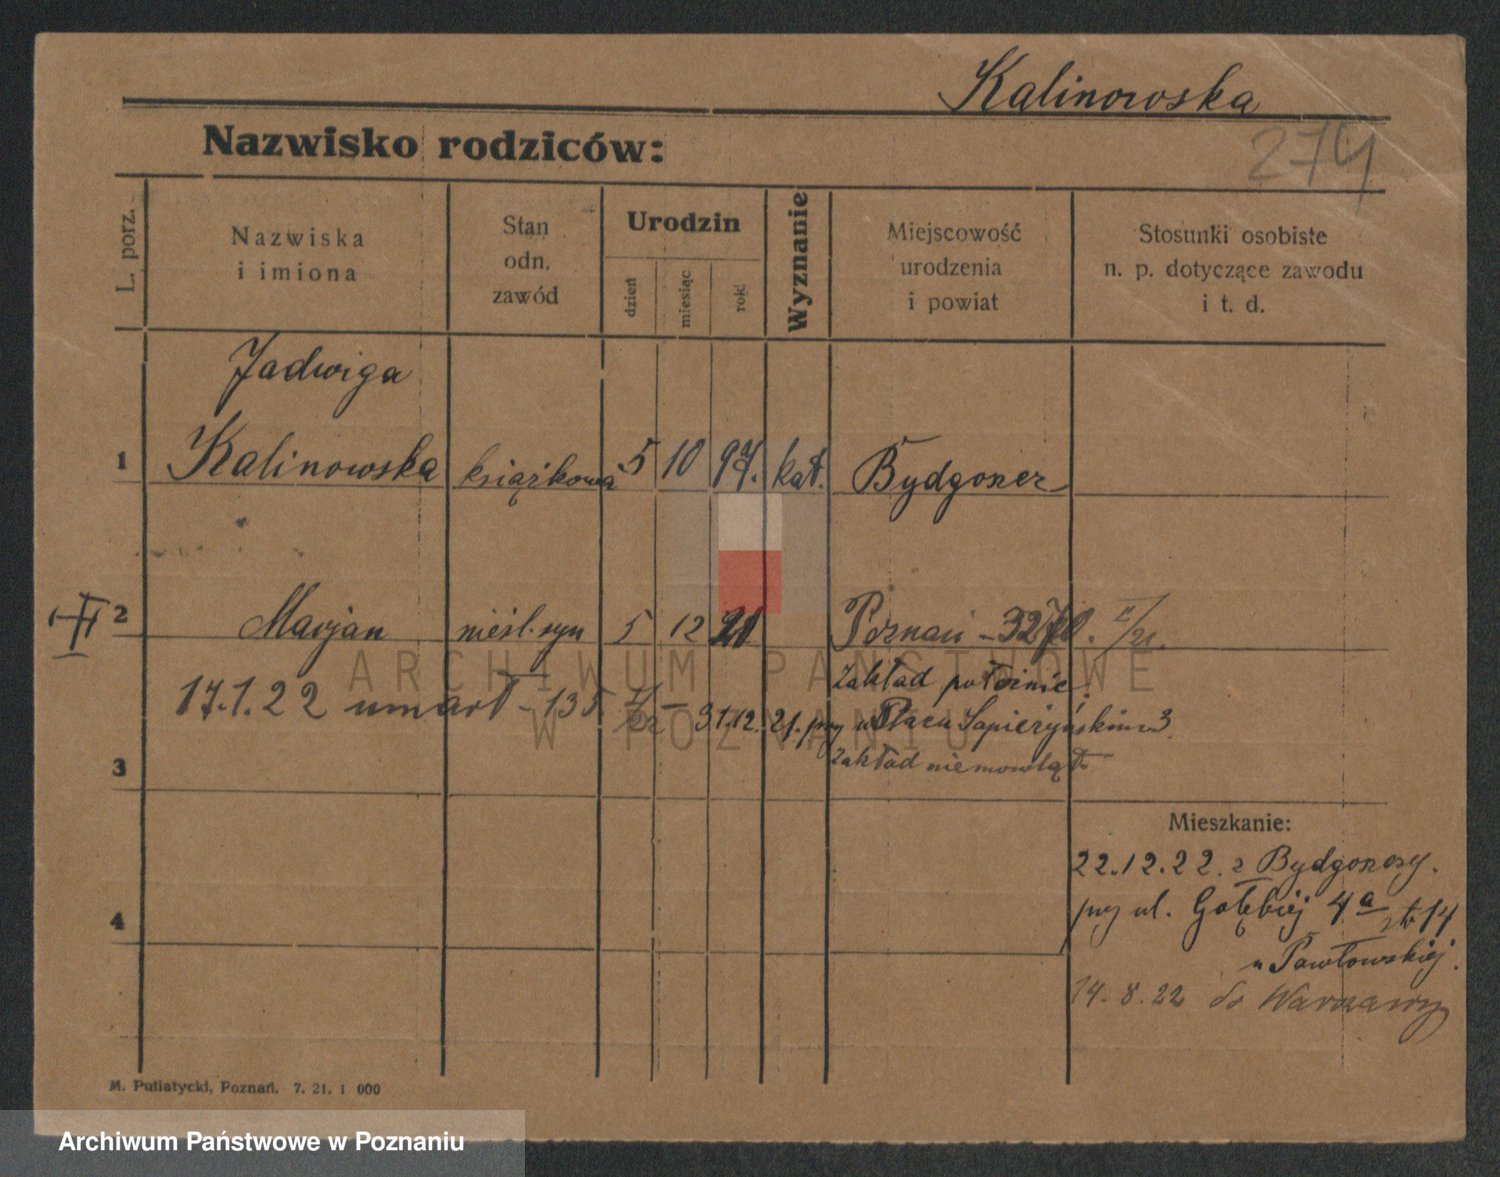 Kalinowska
Nazwisko rodziców:
274
L. porz.
Nazwiska
i imiona
Stan
odn.
zawód
Urodzin
dzień
miesiąc
rok
Wyznanie
Miejscowość
urodzenia
i powiat
Stosunki osobiste
n. p. dotyczące zawodu
i t. d.
Jadwiga
1 Kalinowska książkowa 5 10 97. kat. Bydgoszcz
2 Marjan nieśl. syn 5 12 21 Poznań - 3270. II/21.
ARCHIWUM PAŃSTWOWE
W POZNANIU
Zakład położnic.
17.1.22 umarł - 135 31.12.21. przy Placu Sapieżyńskim 3
3 Zakład niemowląt
Mieszkanie:
22.12.22. z Bydgoszczy.
przy ul. Gołębiej 4a 14
4
u Pawłowskiej.
14.8.22 do Warszawy
M. Putiatycki, Poznań. 7. 21. 1 000
Archiwum Państwowe w Poznaniu